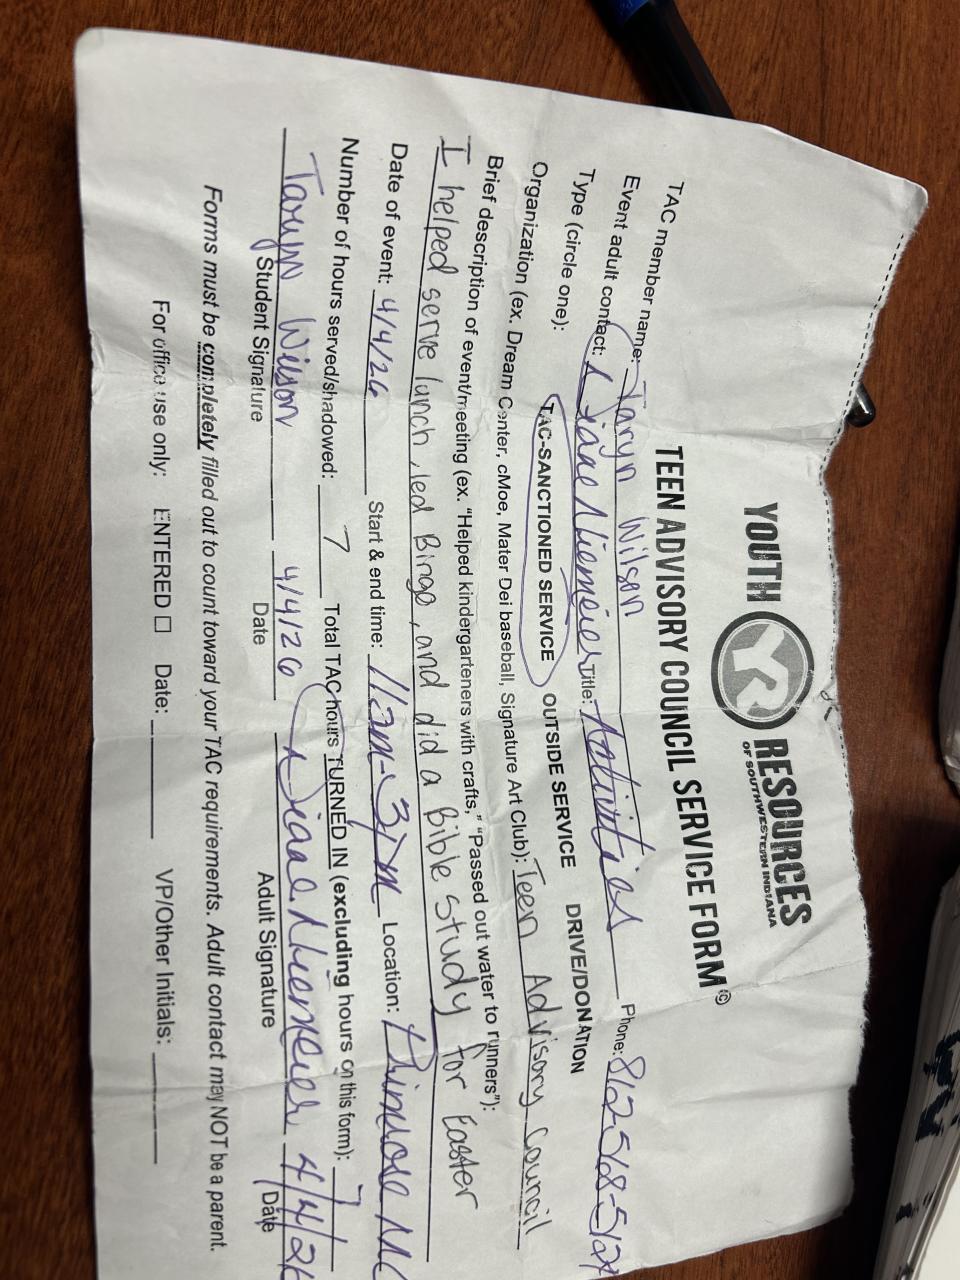 YOUTH YR RESOURCES
OF SOUTHWESTERN INDIANA
TEEN ADVISORY COUNCIL SERVICE FORM©
TAC member name: Taryn Wilson
Event adult contact: Diane Niemeier Title: Activities Phone: 812 568-512
Type (circle one): TAC-SANCTIONED SERVICE OUTSIDE SERVICE DRIVE/DONATION
Organization (ex. Dream Center, cMoe, Mater Dei baseball, Signature Art Club): Teen Advisory Council
Brief description of event/meeting (ex. "Helped kindergarteners with crafts," "Passed out water to runners"):
I helped serve lunch, led Bingo, and did a Bible study for Easter
Date of event: 4/4/26 Start & end time: 11am-3pm Location: Primrose
Number of hours served/shadowed: 7 Total TAC hours TURNED IN (excluding hours on this form): 7
Taryn Wilson 4/4/26 Diane Niemeier 4/4/26
Student Signature Date Adult Signature Date
Forms must be completely filled out to count toward your TAC requirements. Adult contact may NOT be a parent.
For office use only: ENTERED ☐ Date: ________ VP/Other Initials: ________